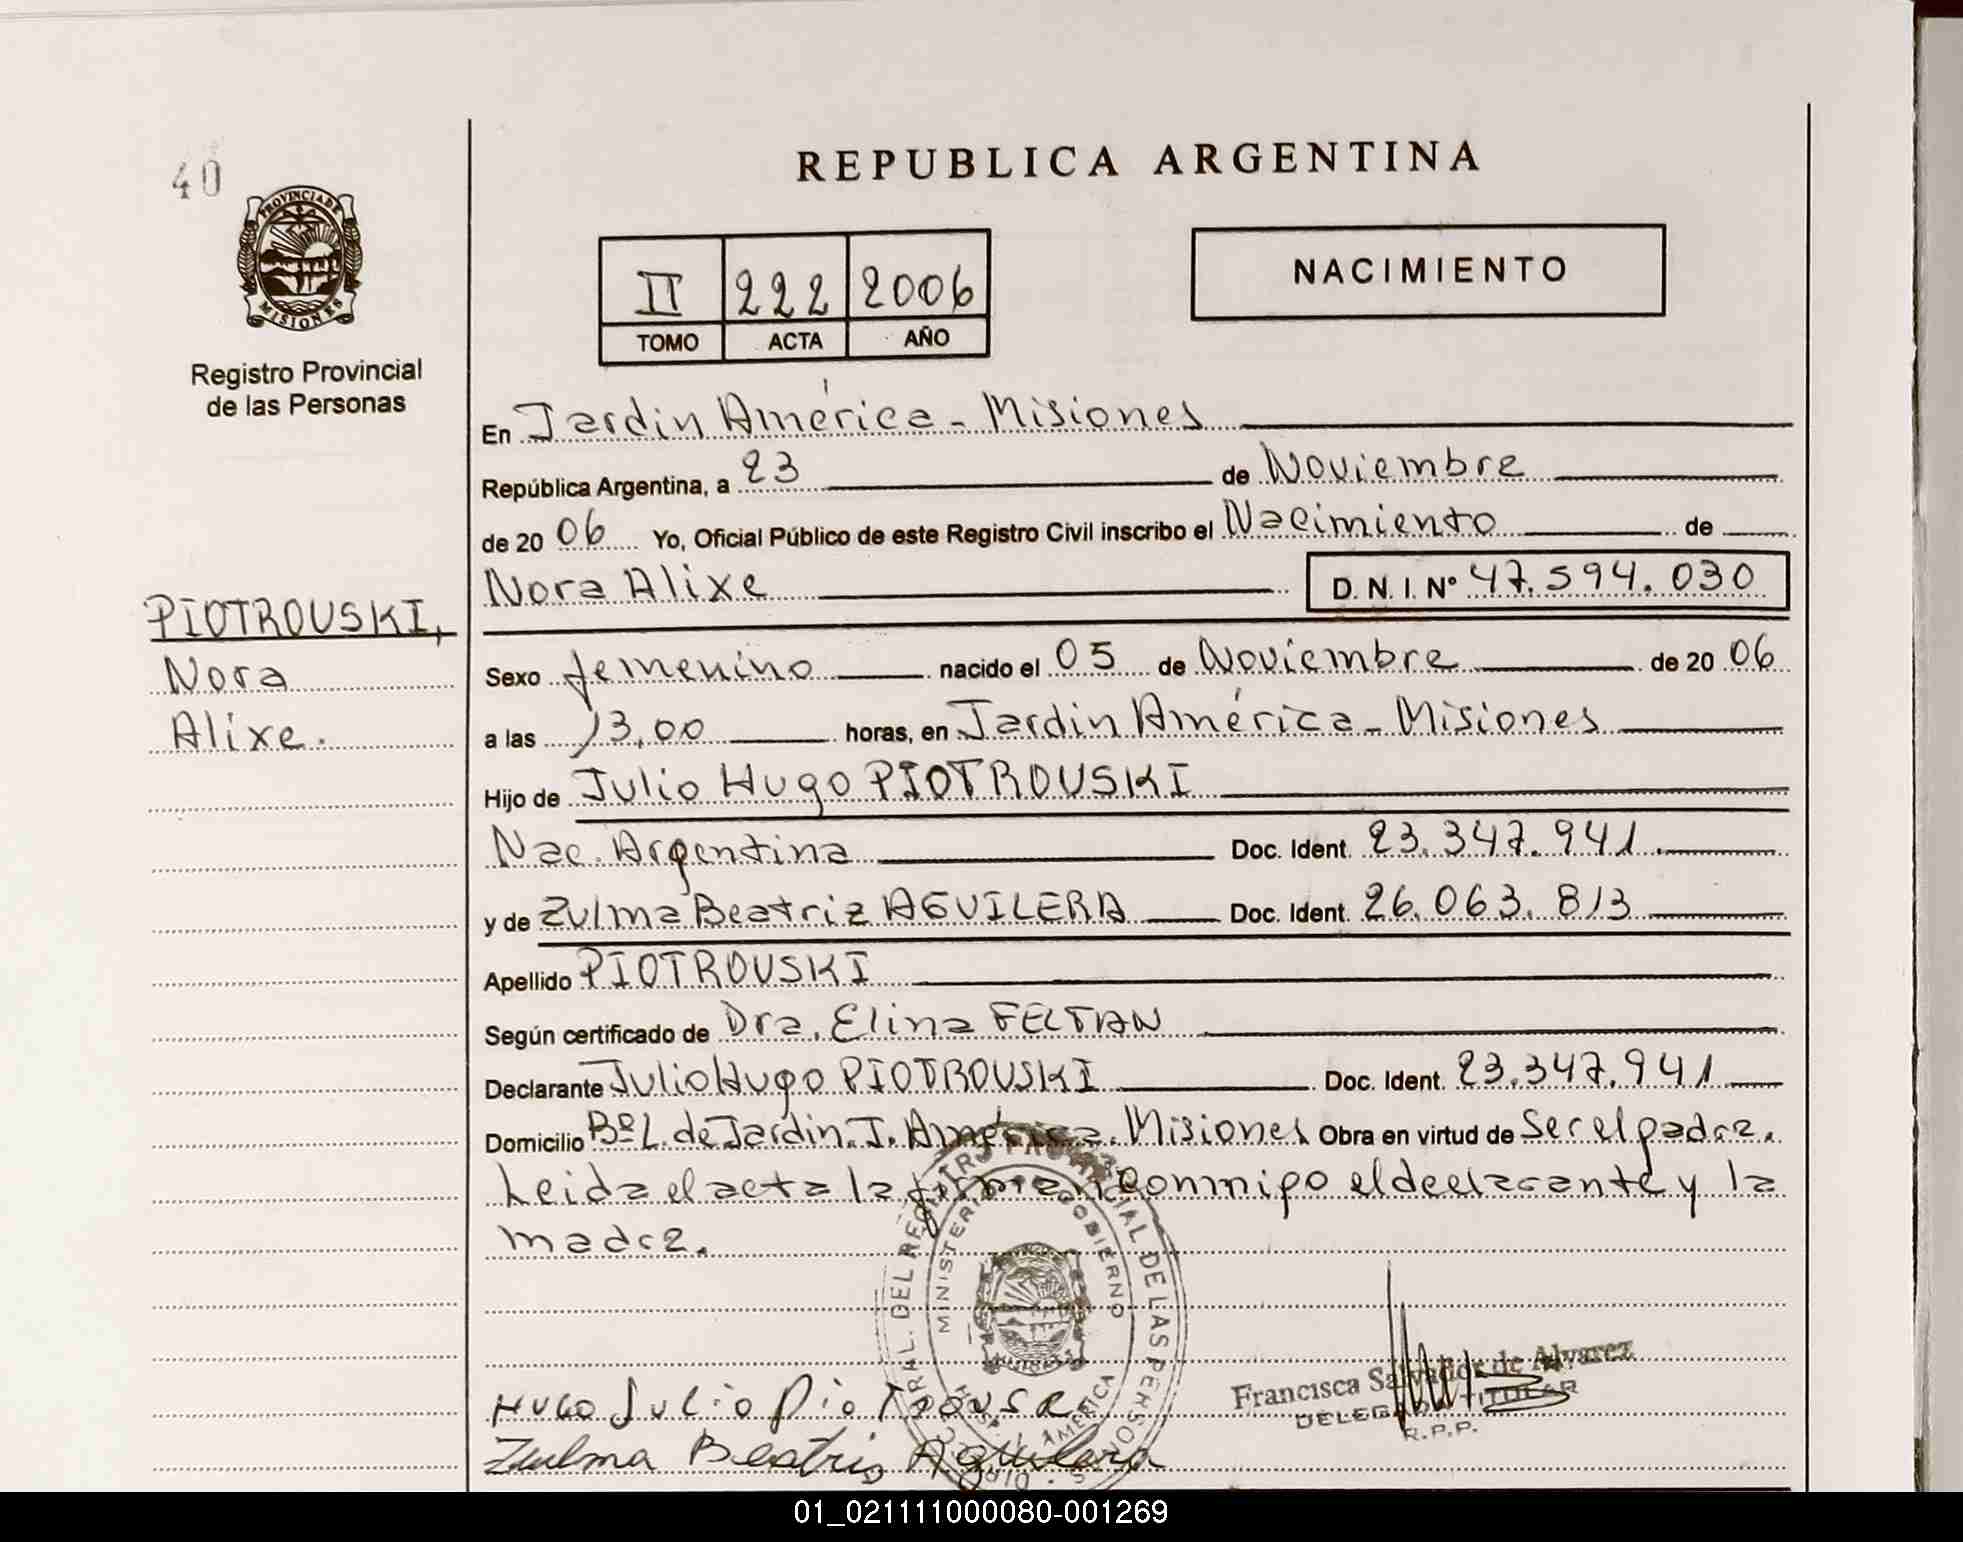 40
PROVINCIA DE
MISIONES
Registro Provincial
de las Personas
PIOTROUSKI,
Nora
Alixe.
REPUBLICA ARGENTINA
II 222 2006
TOMO ACTA AÑO
NACIMIENTO
En Jardin América - Misiones
República Argentina, a 23 de Noviembre
de 2006 Yo, Oficial Público de este Registro Civil inscribo el Nacimiento de
Nora Alixe D. N. I. Nº 47.594.030
Sexo femenino nacido el 05 de Noviembre de 2006
a las 13,00 horas, en Jardin América - Misiones
Hijo de Julio Hugo PIOTROUSKI
Nac. Argentina Doc. Ident. 23.347.941.
y de Zulma Beatriz AGUILERA Doc. Ident. 26.063.813
Apellido PIOTROUSKI
Según certificado de Dra. Elina FELTAN
Declarante Julio Hugo PIOTROUSKI Doc. Ident. 23.347.941
Domicilio Bº L. de Jardin. J. América. Misiones Obra en virtud de Ser el padre.
Leida el acta la firman conmigo el declarante y la
madre.
DEL REGISTRO PROVINCIAL DE LAS PERSONAS
MINISTERIO GOBIERNO
AMERICA
Francisca Salvador de Alvarez
DELEGADA TITULAR
R.P.P.
Hugo Julio
Zulma Beatris Aguilera
01_021111000080-001269